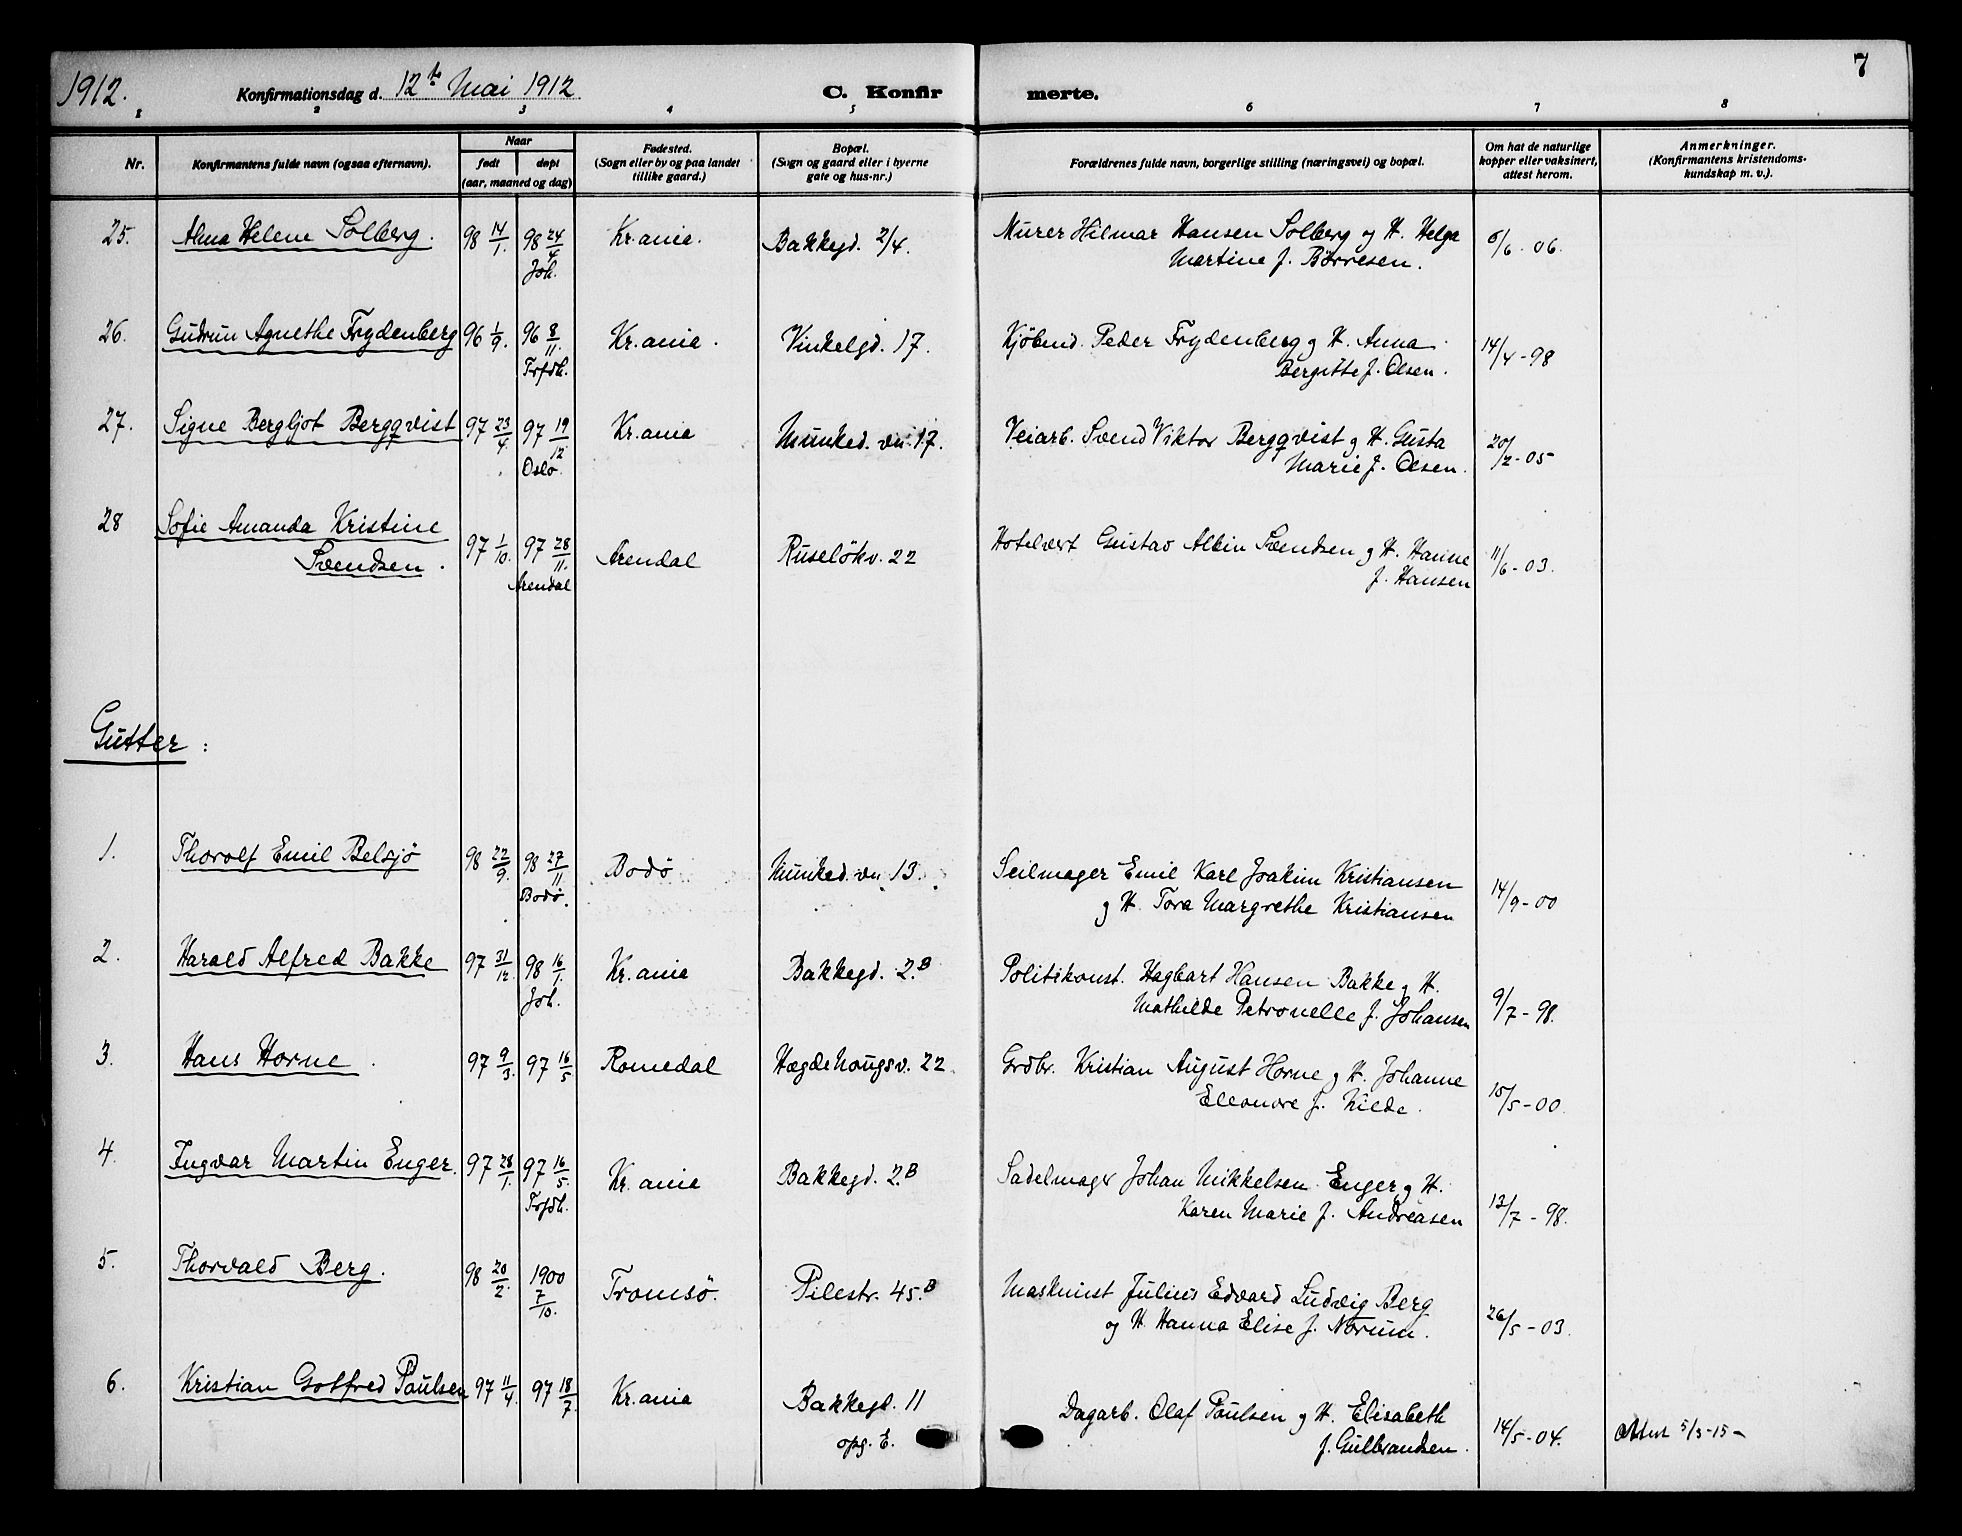 1912. Konfirmationsdag d. 12te Mai 1912 C. Konfirmerte. 7
1 2 3 4 5 6 7 8
Nr. Konfirmantens fulde navn (ogsaa efternavn). Naar født døpt (aar, maaned og dag) Fødested. (Sogn eller by og paa landet tillike gaard.) Bopæl. (Sogn og gaard eller i byerne gate og hus-nr.) Forældrenes fulde navn, borgerlige stilling (næringsvei) og bopæl. Om hat de naturlige kopper eller vaksinert, attest herom. Anmerkninger. (Konfirmantens kristendoms-kundskap m. v.).
25. Alma Helene Solberg. 98 14/1. 98 24/4 Joh. Kr.ania. Bakkegd. 2/4. Murer Hilmar Hansen Solberg og H. Helga
Martine f. Børresen. 6/6. 06.
26. Gudrun Agnethe Frydenberg 96 1/9. 96 8/11. Trfdh. Kr.ania. Vinkelgd. 17. Kjöbmd. Peder Frydenberg og H. Anna
Bergitte f. Olsen. 14/4-98
27. Signe Bergljot Bergqvist 97 23/4. 97 19/12. Oslo. Kr.ania Munked. vn. 17. Veiarb. Svend Viktor Bergqvist og H. Gusta
Marie f. Olsen. 20/2-05
28 Sofie Amanda Kristine
Svendsen. 97 1/10. 97 28/11. Arendal Arendal Ruselökv. 22 Hotelvert Gustav Albin Svendsen og H. Hanne
f. Hansen 11/6-03.
Gutter:
1. Thorolf Emil Belsjö 98 22/9. 98 27/11 Bodö. Bodö Munked. vn 13. Seilmager Emil Karl Joakim Kristiansen
og H. Tora Margrethe Kristiansen 14/9-00
2. Harald Alfred Bakke 97 31/12 98 16/1. Joh. Kr.ania Bakkegd. 2.B Politikonst. Hagbart Hansen Bakke og H.
Mathilde Petronelle f. Johansen 9/7-98.
3. Hans Horne. 97 9/3. 97 16/5 Romedal Hægdehougsv. 22. Grdbr. Kristian August Horne og H. Johanne
Eleonore f. Kilde. 15/5-00.
4. Ingvar Martin Enger. 97 28/1. 97 16/5. Trfdh. Kr.ania Bakkegd. 2.B Sadelmager Johan Mikkelsen Enger og H.
Karen Marie f. Andreasen 13/7-98.
5. Thorvald Berg. 98 20/2. 1900 7/10. Tromsö. Pilestr. 45.B Maskinist Julius Edvard Ludvig Berg
og H. Hanna Elise f. Norum. 26/5-03.
6. Kristian Gotfred Paulsen 97 11/4. 97 18/7. Kr.ania Bakkegd. 11
opg. E. Dagarb. Olaf Paulsen og H. Elisabeth
f. Gulbrandsen. 14/5-04. Attest 5/3-15